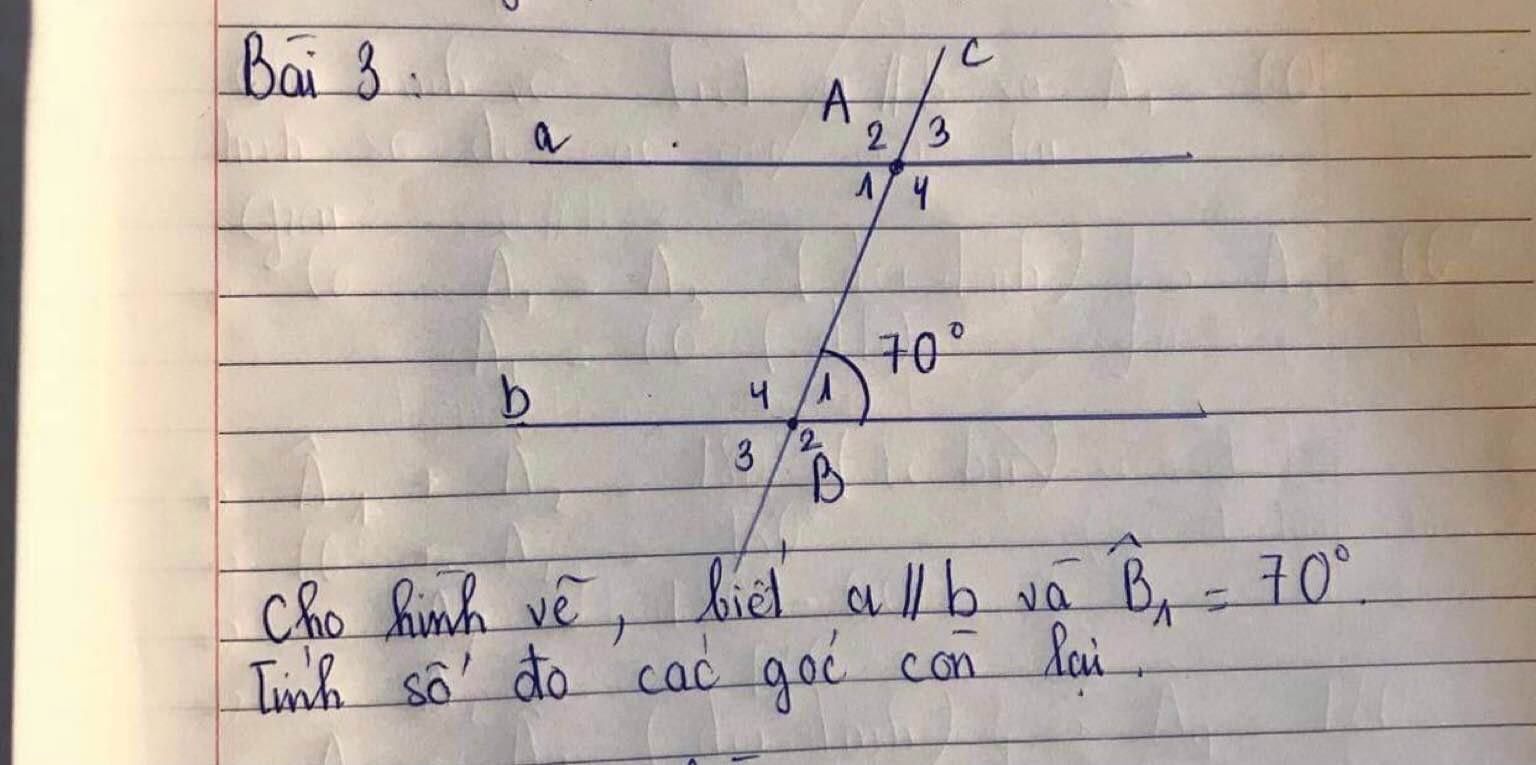 Bài 3 :
C
A
2 3
a
1 4
70°
4 1
b
3 2
B
Cho hình vẽ, biết a // b và B̂₁ = 70°.
Tính số đo các góc còn lại.